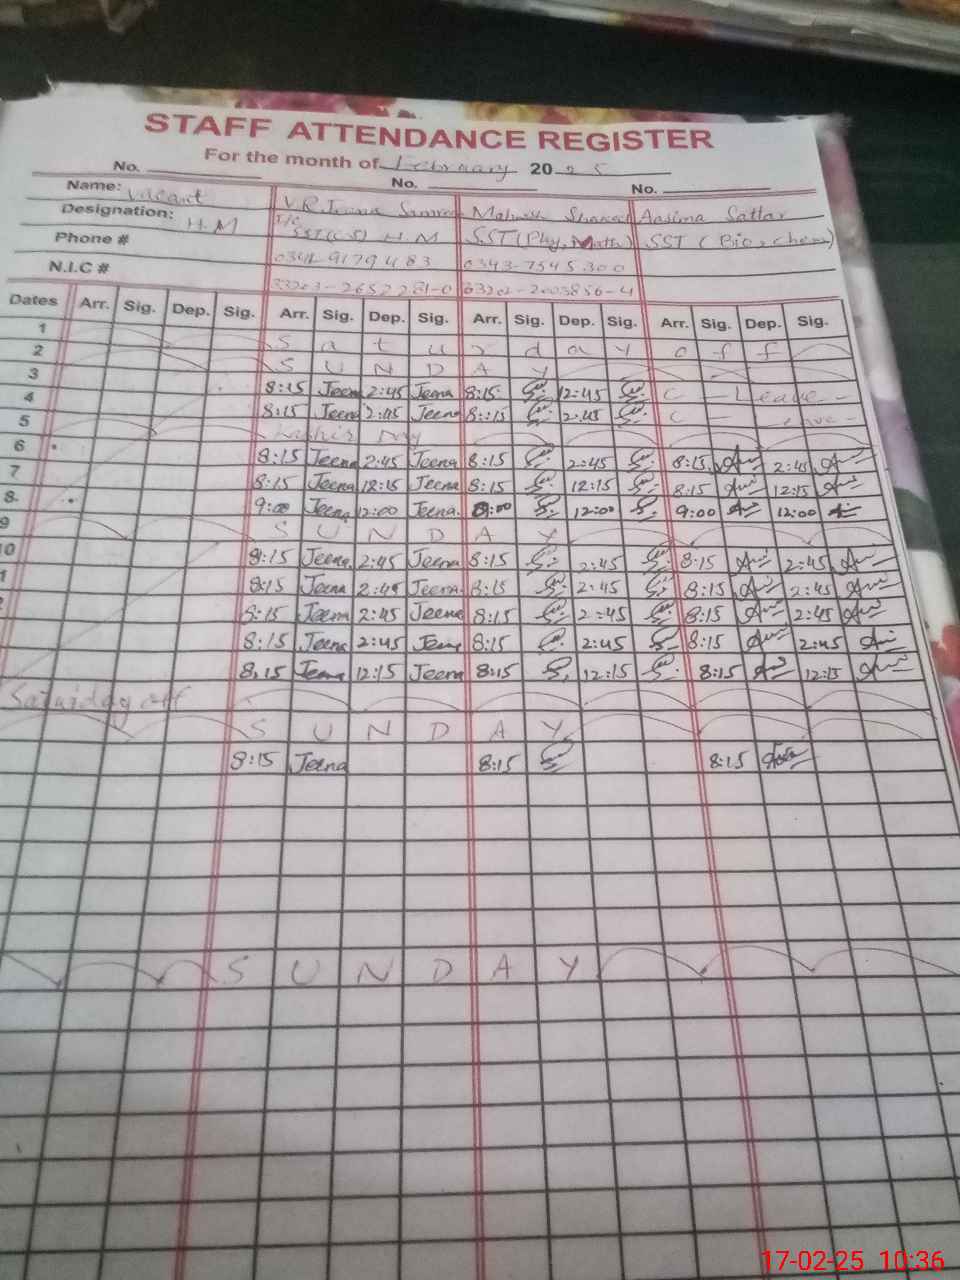 STAFF ATTENDANCE REGISTER
For the month of February 20 25
No. No. No.
Name: Vacant V.R Jeena Mahesh Aasima Sattar
Designation: H.M I/C SST(CS) H.M SST(Phy, Math) SST (Bio, chem)
Phone # 0343-7545300
N.I.C #
Dates Arr. Sig. Dep. Sig. Arr. Sig. Dep. Sig. Arr. Sig. Dep. Sig. Arr. Sig. Dep. Sig.
1 Saturday off
2 SUNDAY
3 8:15 Jeena 2:45 Jeena 8:15 12:45 C - Leave -
4 8:15 Jeena 2:45 Jeena 8:15 2:45 C
5 Kashir Day
6 8:15 Jeena 2:45 Jeena 8:15 2:45 8:15 2:45
7 8:15 Jeena 12:15 Jeena 8:15 12:15 8:15 12:15
8 9:00 Jeena 12:00 Jeena 12:00 9:00 12:00
9 SUNDAY
10 8:15 Jeena 2:45 Jeena 8:15 2:45 8:15 2:45
8:15 Jeena 2:45 Jeena 8:15 2:45 8:15 2:45
8:15 Jeena 2:45 Jeena 8:15 2:45 8:15 2:45
8:15 Jeena 2:45 Jeena 8:15 2:45 8:15 2:45
8:15 Jeena 12:15 Jeena 8:15 12:15 8:15 12:15
Saturday off
SUNDAY
8:15 Jeena 8:15 8:15
SUNDAY
17-02-25 10:36